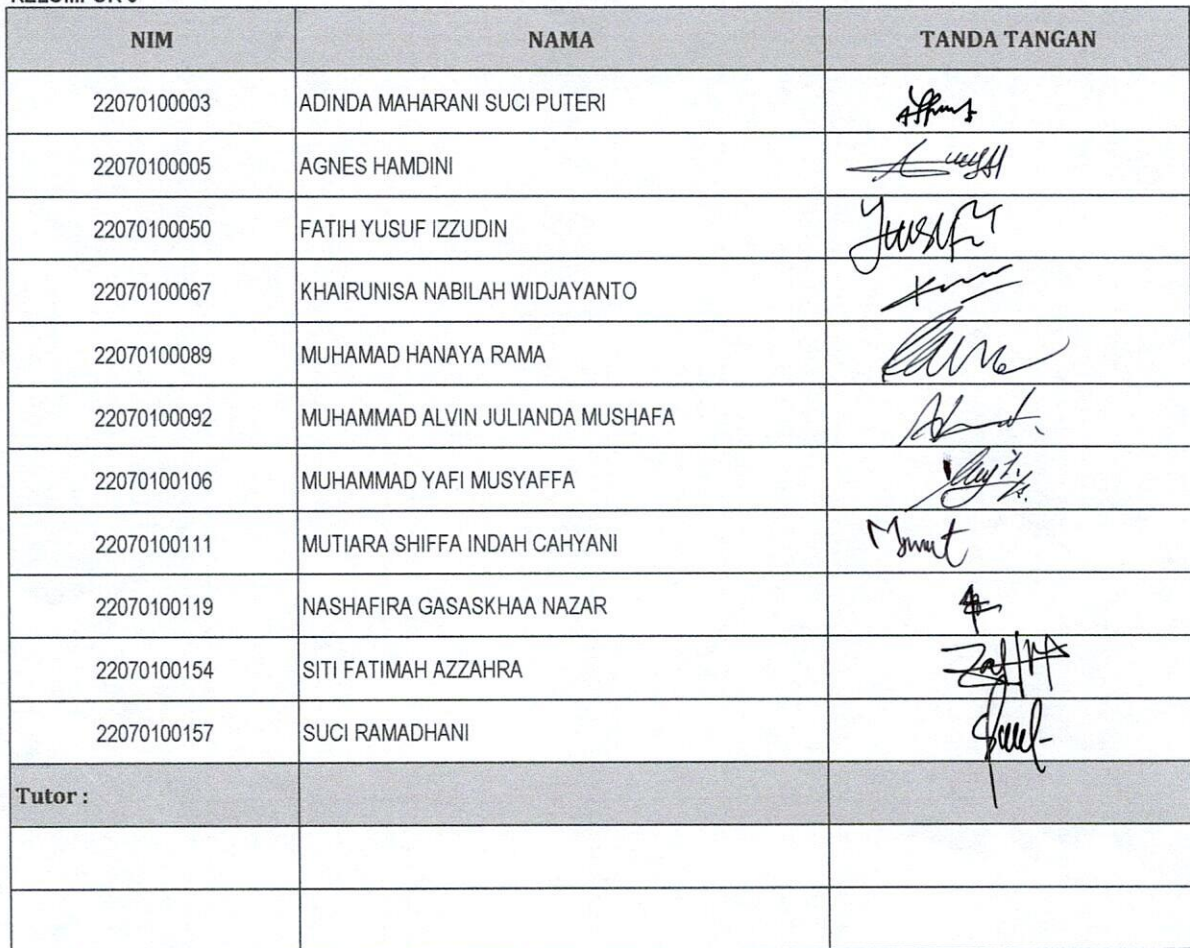 NIM NAMA TANDA TANGAN
22070100003 ADINDA MAHARANI SUCI PUTERI
22070100005 AGNES HAMDINI
22070100050 FATIH YUSUF IZZUDIN
22070100067 KHAIRUNISA NABILAH WIDJAYANTO
22070100089 MUHAMAD HANAYA RAMA
22070100092 MUHAMMAD ALVIN JULIANDA MUSHAFA
22070100106 MUHAMMAD YAFI MUSYAFFA
22070100111 MUTIARA SHIFFA INDAH CAHYANI
22070100119 NASHAFIRA GASASKHAA NAZAR
22070100154 SITI FATIMAH AZZAHRA
22070100157 SUCI RAMADHANI
Tutor :